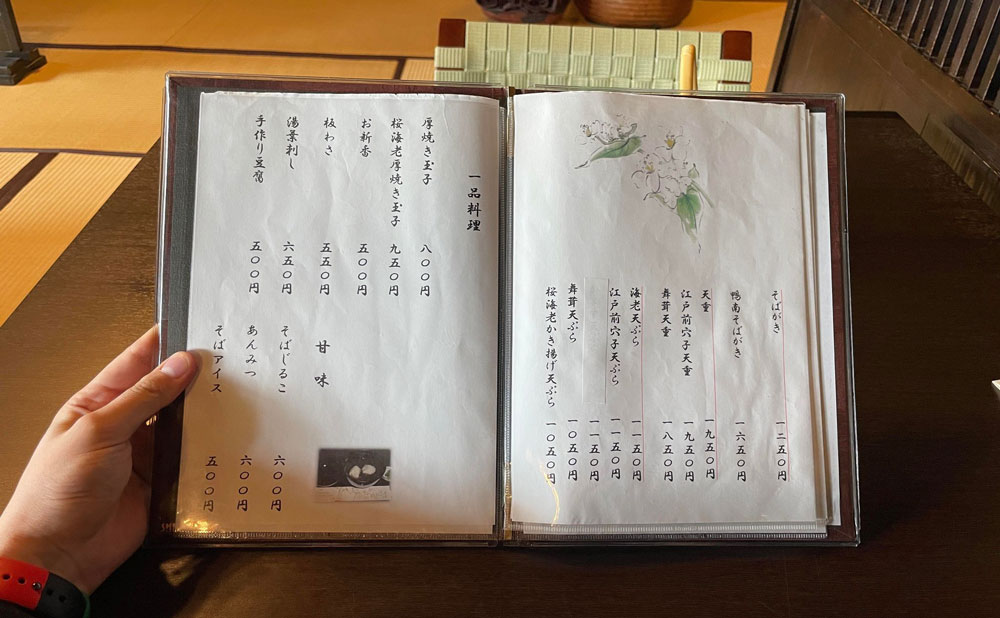 そばがき 一二五〇円
鴨南そばがき 一六五〇円
天重 一九五〇円
江戸前穴子天重 一九五〇円
舞茸天重 一八五〇円
海老天ぷら 一一五〇円
江戸前穴子天ぷら 一一五〇円
一一五〇円
舞茸天ぷら 一〇五〇円
桜海老かき揚げ天ぷら 一〇五〇円
一品料理
厚焼き玉子 八〇〇円
桜海老厚焼き玉子 九五〇円
お新香 五〇〇円
板わさ 五五〇円
湯葉刺し 六五〇円
手作り豆腐 五〇〇円
甘味
そばじるこ 六〇〇円
あんみつ 六〇〇円
そばアイス 五〇〇円